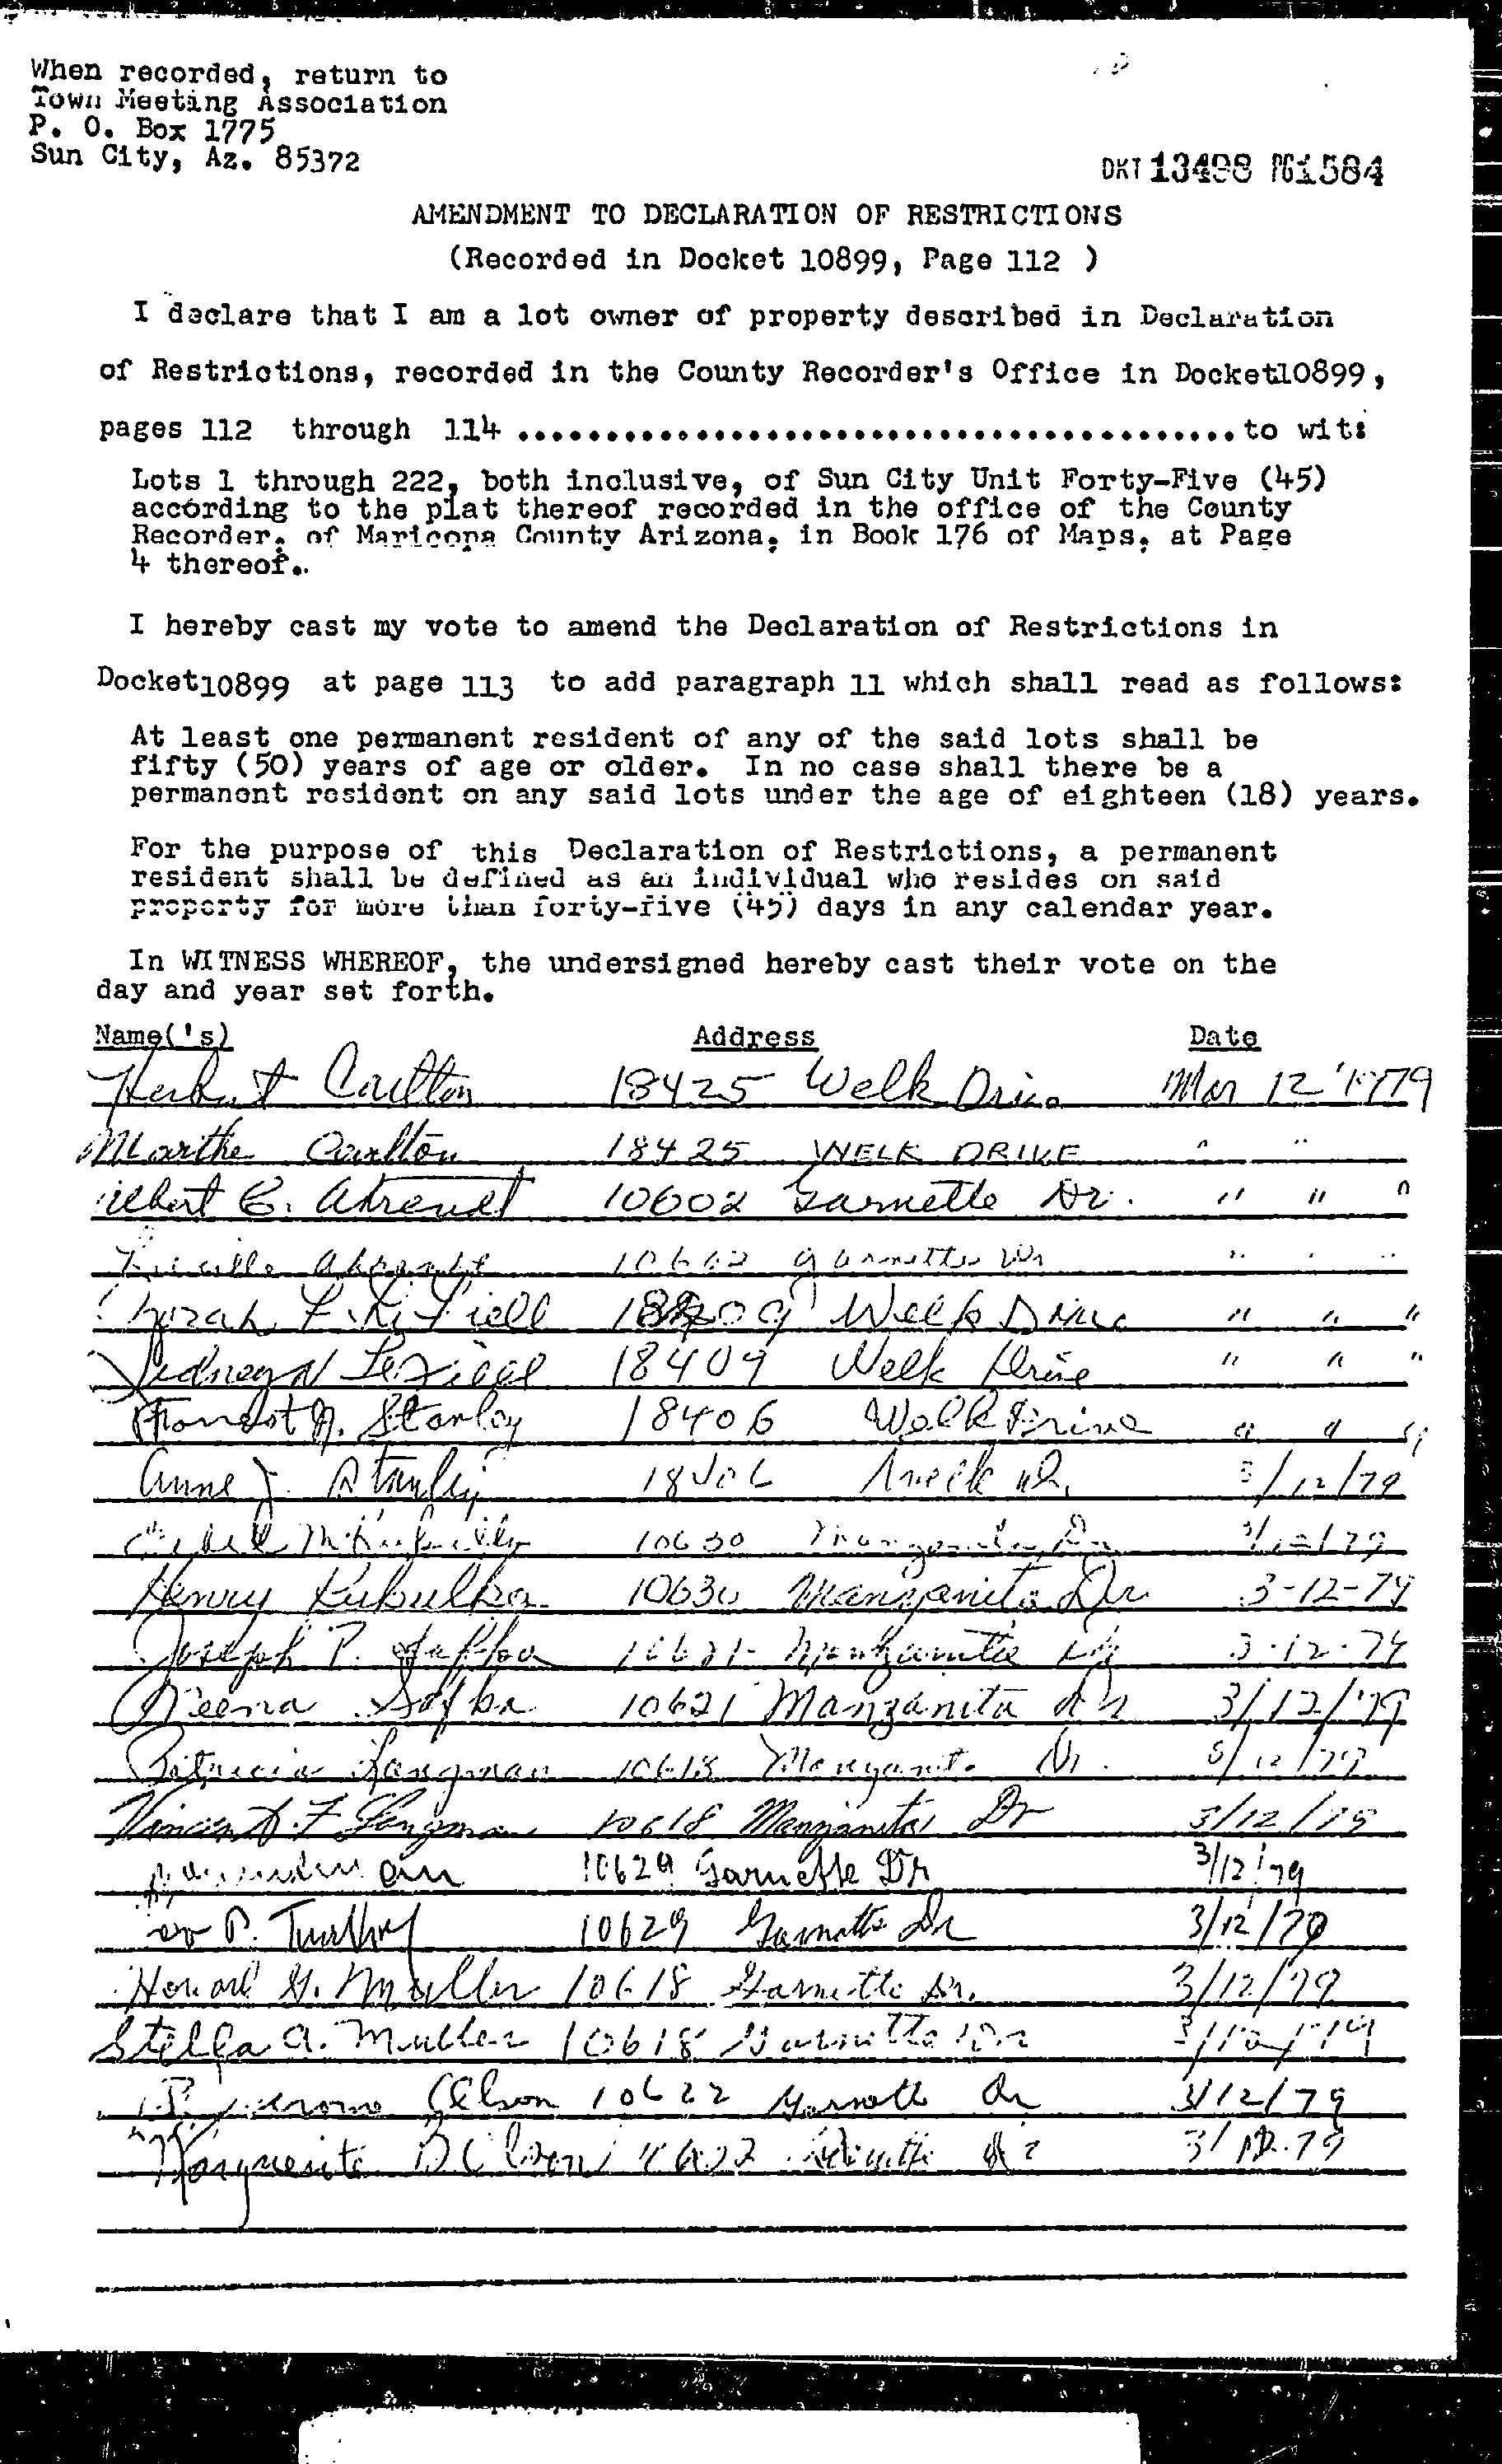 When recorded, return to
Town Meeting Association
P. O. Box 1775
Sun City, Az. 85372
DKT 13498 PG 1584
AMENDMENT TO DECLARATION OF RESTRICTIONS
(Recorded in Docket 10899, Page 112 )
I declare that I am a lot owner of property described in Declaration
of Restrictions, recorded in the County Recorder's Office in Docket10899,
pages 112 through 114 ..........................................to wit:
Lots 1 through 222, both inclusive, of Sun City Unit Forty-Five (45)
according to the plat thereof recorded in the office of the County
Recorder, of Maricopa County Arizona, in Book 176 of Maps, at Page
4 thereof..
I hereby cast my vote to amend the Declaration of Restrictions in
Docket10899 at page 113 to add paragraph 11 which shall read as follows:
At least one permanent resident of any of the said lots shall be
fifty (50) years of age or older. In no case shall there be a
permanent resident on any said lots under the age of eighteen (18) years.
For the purpose of this Declaration of Restrictions, a permanent
resident shall be defined as an individual who resides on said
property for more than forty-five (45) days in any calendar year.
In WITNESS WHEREOF, the undersigned hereby cast their vote on the
day and year set forth.
Name('s) Address Date
Herbert Carlton 18425 Welk Drive Mar 12 '1979
Martha Carlton 18425 WELK DRIVE " "
E. Ahrendt 10602 Garnette Dr. " " "
Lucille Ahrendt 10602 Garnette Dr " " "
Welk Drive " " "
Sidney 18409 Welk Drive " " "
Forrest N. Stanley 18406 Welk Drive " " "
Anne J. Stanley 18406 Welk Dr. 3/12/79
10630 Manzanita Dr 3/12/79
Henry Kubulka 10630 Manzanita Dr 3-12-79
Joseph P. Safka 10621 Manzanita Dr 3-12-79
Safka 10621 Manzanita Dr 3/12/79
Patricia Langman 10618 Manzanita Dr. 3/12/79
Vincent F Langman 10618 Manzanita Dr 3/12/79
10629 Garnette Dr 3/12/79
P. 10629 Garnette Dr 3/12/79
Howard G. Muller 10618 Garnette Dr. 3/12/79
Stella A. Muller 10618 Garnette Dr 3/12/79
Jerome Olson 10622 Garnette Dr 3/12/79
Marguerite B Olson 10622 Garnette Dr 3/12.79